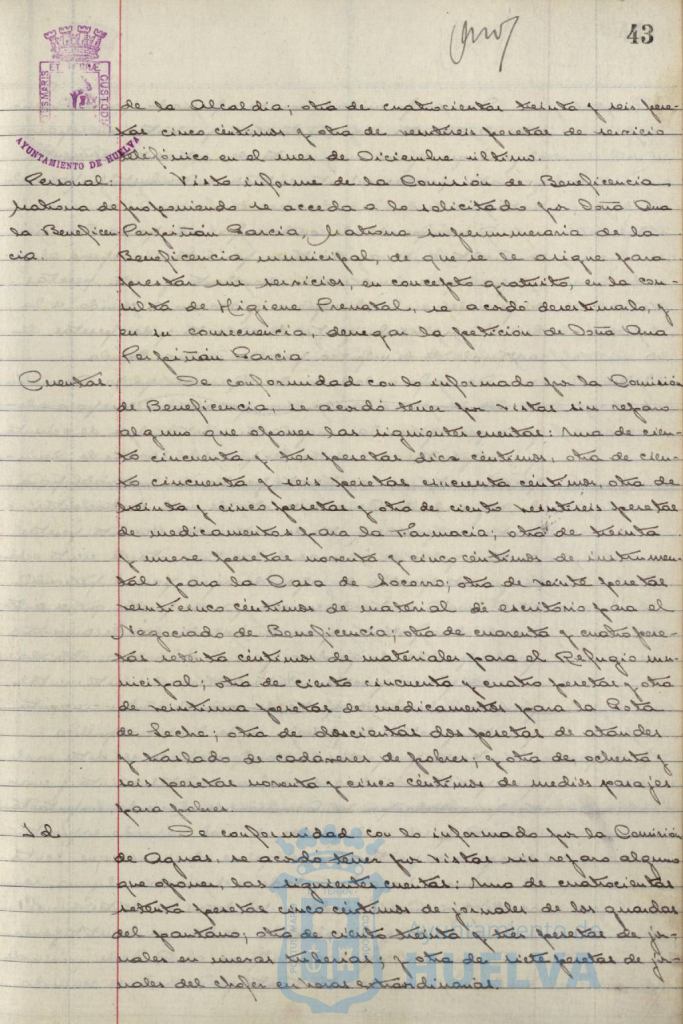 43
AYUNTAMIENTO DE HUELVA
de la Alcaldia; otra de cuatrocientas treinta y seis pese-
tas cinco céntimos y otra de veintiseis pesetas de servicio
telefónico en el mes de Diciembre ultimo.
Personal: Visto informe de la Comisión de Beneficencia
Matrona de proponiendo se acceda a lo solicitado por Doña Ana
la Beneficen- Perpiñán Garcia, Matrona supernumeraria de la
cia. Beneficencia municipal, de que se le asigne para
prestar sus servicios, en concepto gratuito, en la con-
sulta de Higiene Prenatal, se acordó desestimarlo, y
en su consecuencia, denegar la petición de Doña Ana
Perpiñán Garcia
Cuentas. De conformidad con lo informado por la Comisión
de Beneficencia, se acordó tener por vistas sin reparo
alguno que oponer las siguientes cuentas: una de cien-
to cincuenta y tres pesetas diez céntimos, otra de cien-
to cincuenta y seis pesetas cincuenta céntimos, otra de
treinta y cinco pesetas y otra de ciento veintiseis pesetas
de medicamentos para la Farmacia; otra de treinta
y nueve pesetas noventa y cinco céntimos de instrumen-
tal para la Casa de Socorro; otra de veinte pesetas
veinticinco céntimos de material de escritorio para el
Negociado de Beneficencia; otra de cuarenta y cuatro pese-
tas setenta céntimos de materiales para el Refugio mu-
nicipal; otra de ciento cincuenta y cuatro pesetas y otra
de veintiuna pesetas de medicamentos para la Gota
de Leche; otra de doscientas dos pesetas de ataudes
y traslado de cadáveres de pobres; y otra de ochenta y
seis pesetas noventa y cinco céntimos de medios pasajes
para pobres.
Id De conformidad con lo informado por la Comisión
de Aguas, se acordó tener por vistas sin reparo alguno
que oponer, las siguientes cuentas: una de cuatrocientas
setenta pesetas cinco céntimos de jornales de los guardas
del pantano; otra de ciento treinta y tres pesetas de jor-
nales en nuevas tuberias; y otra de siete pesetas de jor-
nales del chofer en horas extraordinarias.
Ayuntamiento de
HUELVA